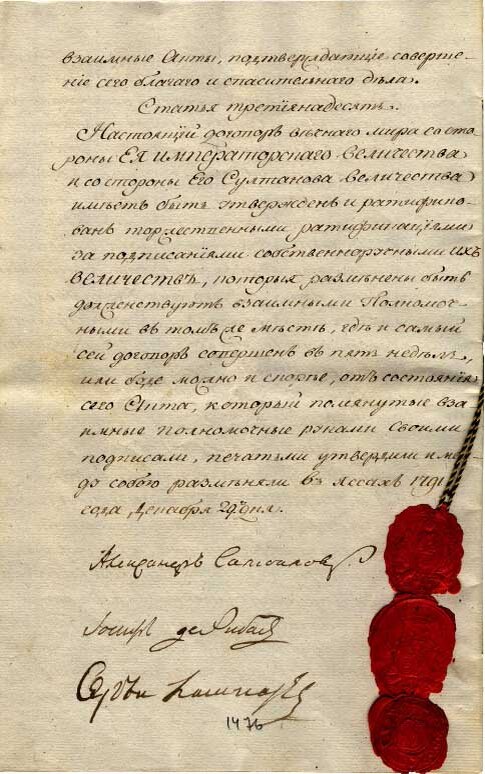 взаимные Акты, подтверждающіе соверше-
ніе сего благаго и спасительнаго дѣла.
Статья третіянадесять.
Настоящій договоръ вѣчнаго мира со сто-
роны ЕЯ императорскаго величества
и со стороны Его Султанова величества
имѣетъ быть утвержденъ и ратифико-
ванъ торжественными ратификаціями
за подписаніями собственноручными ихъ
величествъ, которыя размѣнены быть
долженствуютъ взаимными Полномоч-
ными въ томъ же мѣстѣ, гдѣ и самый
сей договоръ совершенъ въ пять недѣль,
или буде можно и скорѣе, отъ состоянія
сего Акта, который помянутые вза-
имные полномочные руками своими
подписали, печатьми утвердили и меж-
ду собою размѣняли въ Яссахъ 1791
года, Декабря 29 дня.
Александръ Самойловъ
Іосифъ де Рибасъ
Сергѣй Лашкаревъ
1476